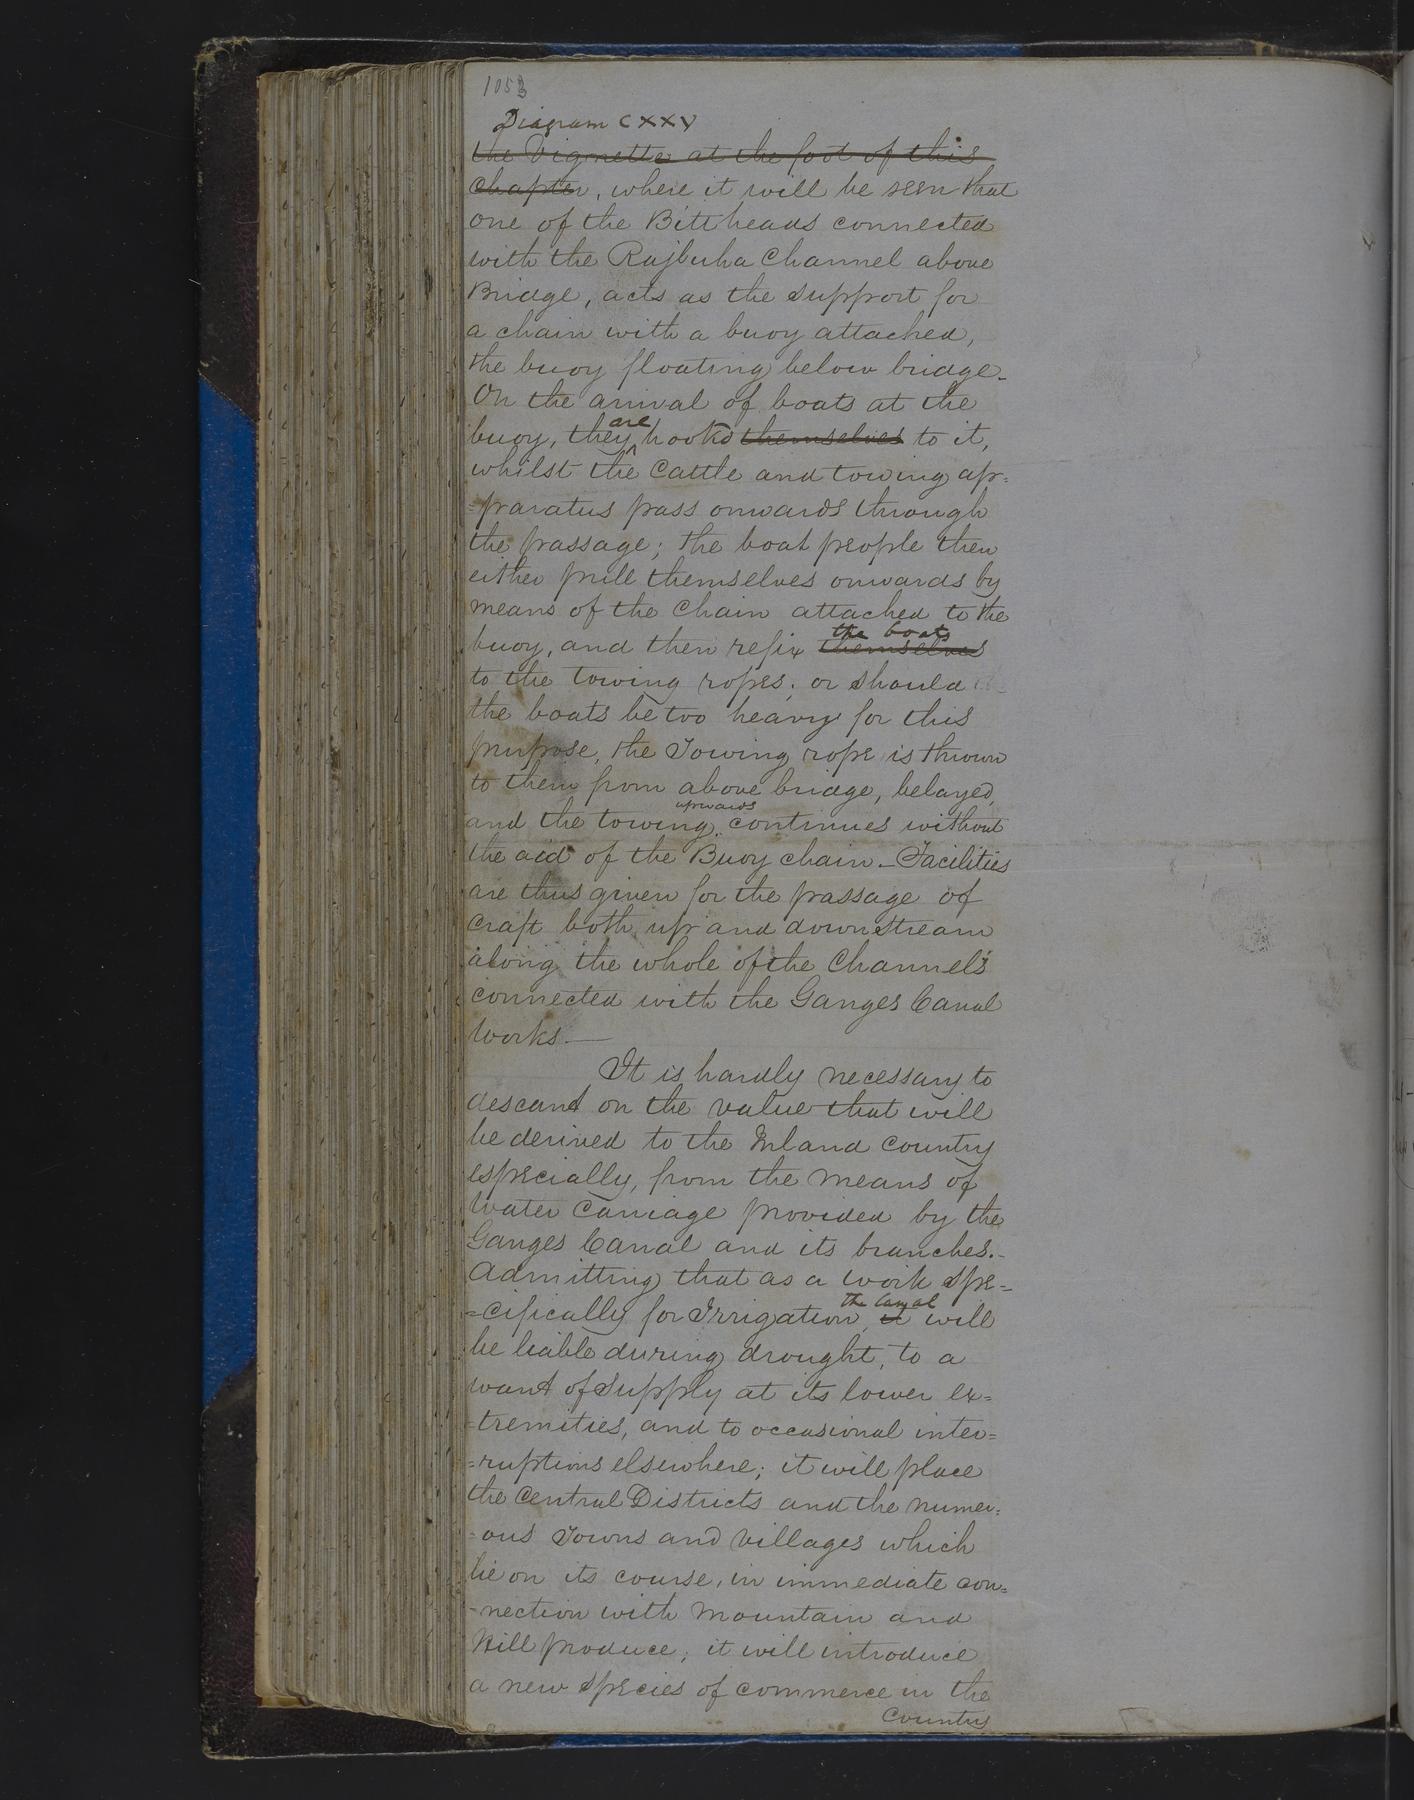 1053
Diagram CXXV
the Vignette at the foot of this
chapter, where it will be seen that
one of the Bitt heads connected
with the Rajbuha Channel above
Bridge, acts as the support for
a chain with a buoy attached,
the buoy floating below bridge.
On the arrival of boats at the
are
buoy, they hooks themselves to it,
whilst the Cattle and towing ap=
=paratus pass onwards through
the passage; the boat people then
either pull themselves onwards by
means of the Chain attached to the
the boats
buoy, and then refix themselves
to the towing ropes; or should
the boats be too heavy for this
purpose, the Towing rope is thrown
to them from above bridge, belayed,
upwards
and the towing continues without
the aid of the Buoy chain_Facilities
are thus given for the passage of
craft both up and down stream
along the whole of the Channels
connected with the Ganges Canal
Works.—
It is hardly necessary to
descant on the value that will
be derived to the Inland country
especially, from the means of
Water Carriage provided by the
Ganges Canal and its branches.-
Admitting that as a work spe=
the Canal
=cifically for Irrigation, it will
be liable during drought, to a
want of supply at its lower ex=
=tremities, and to occasional inter=
=ruptions elsewhere; it will place
the Central Districts and the numer=
=ous Towns and Villages which
lie on its course, in immediate con=
=nection with Mountain and
Hill produce; it will introduce
a new species of commerce in the
Country